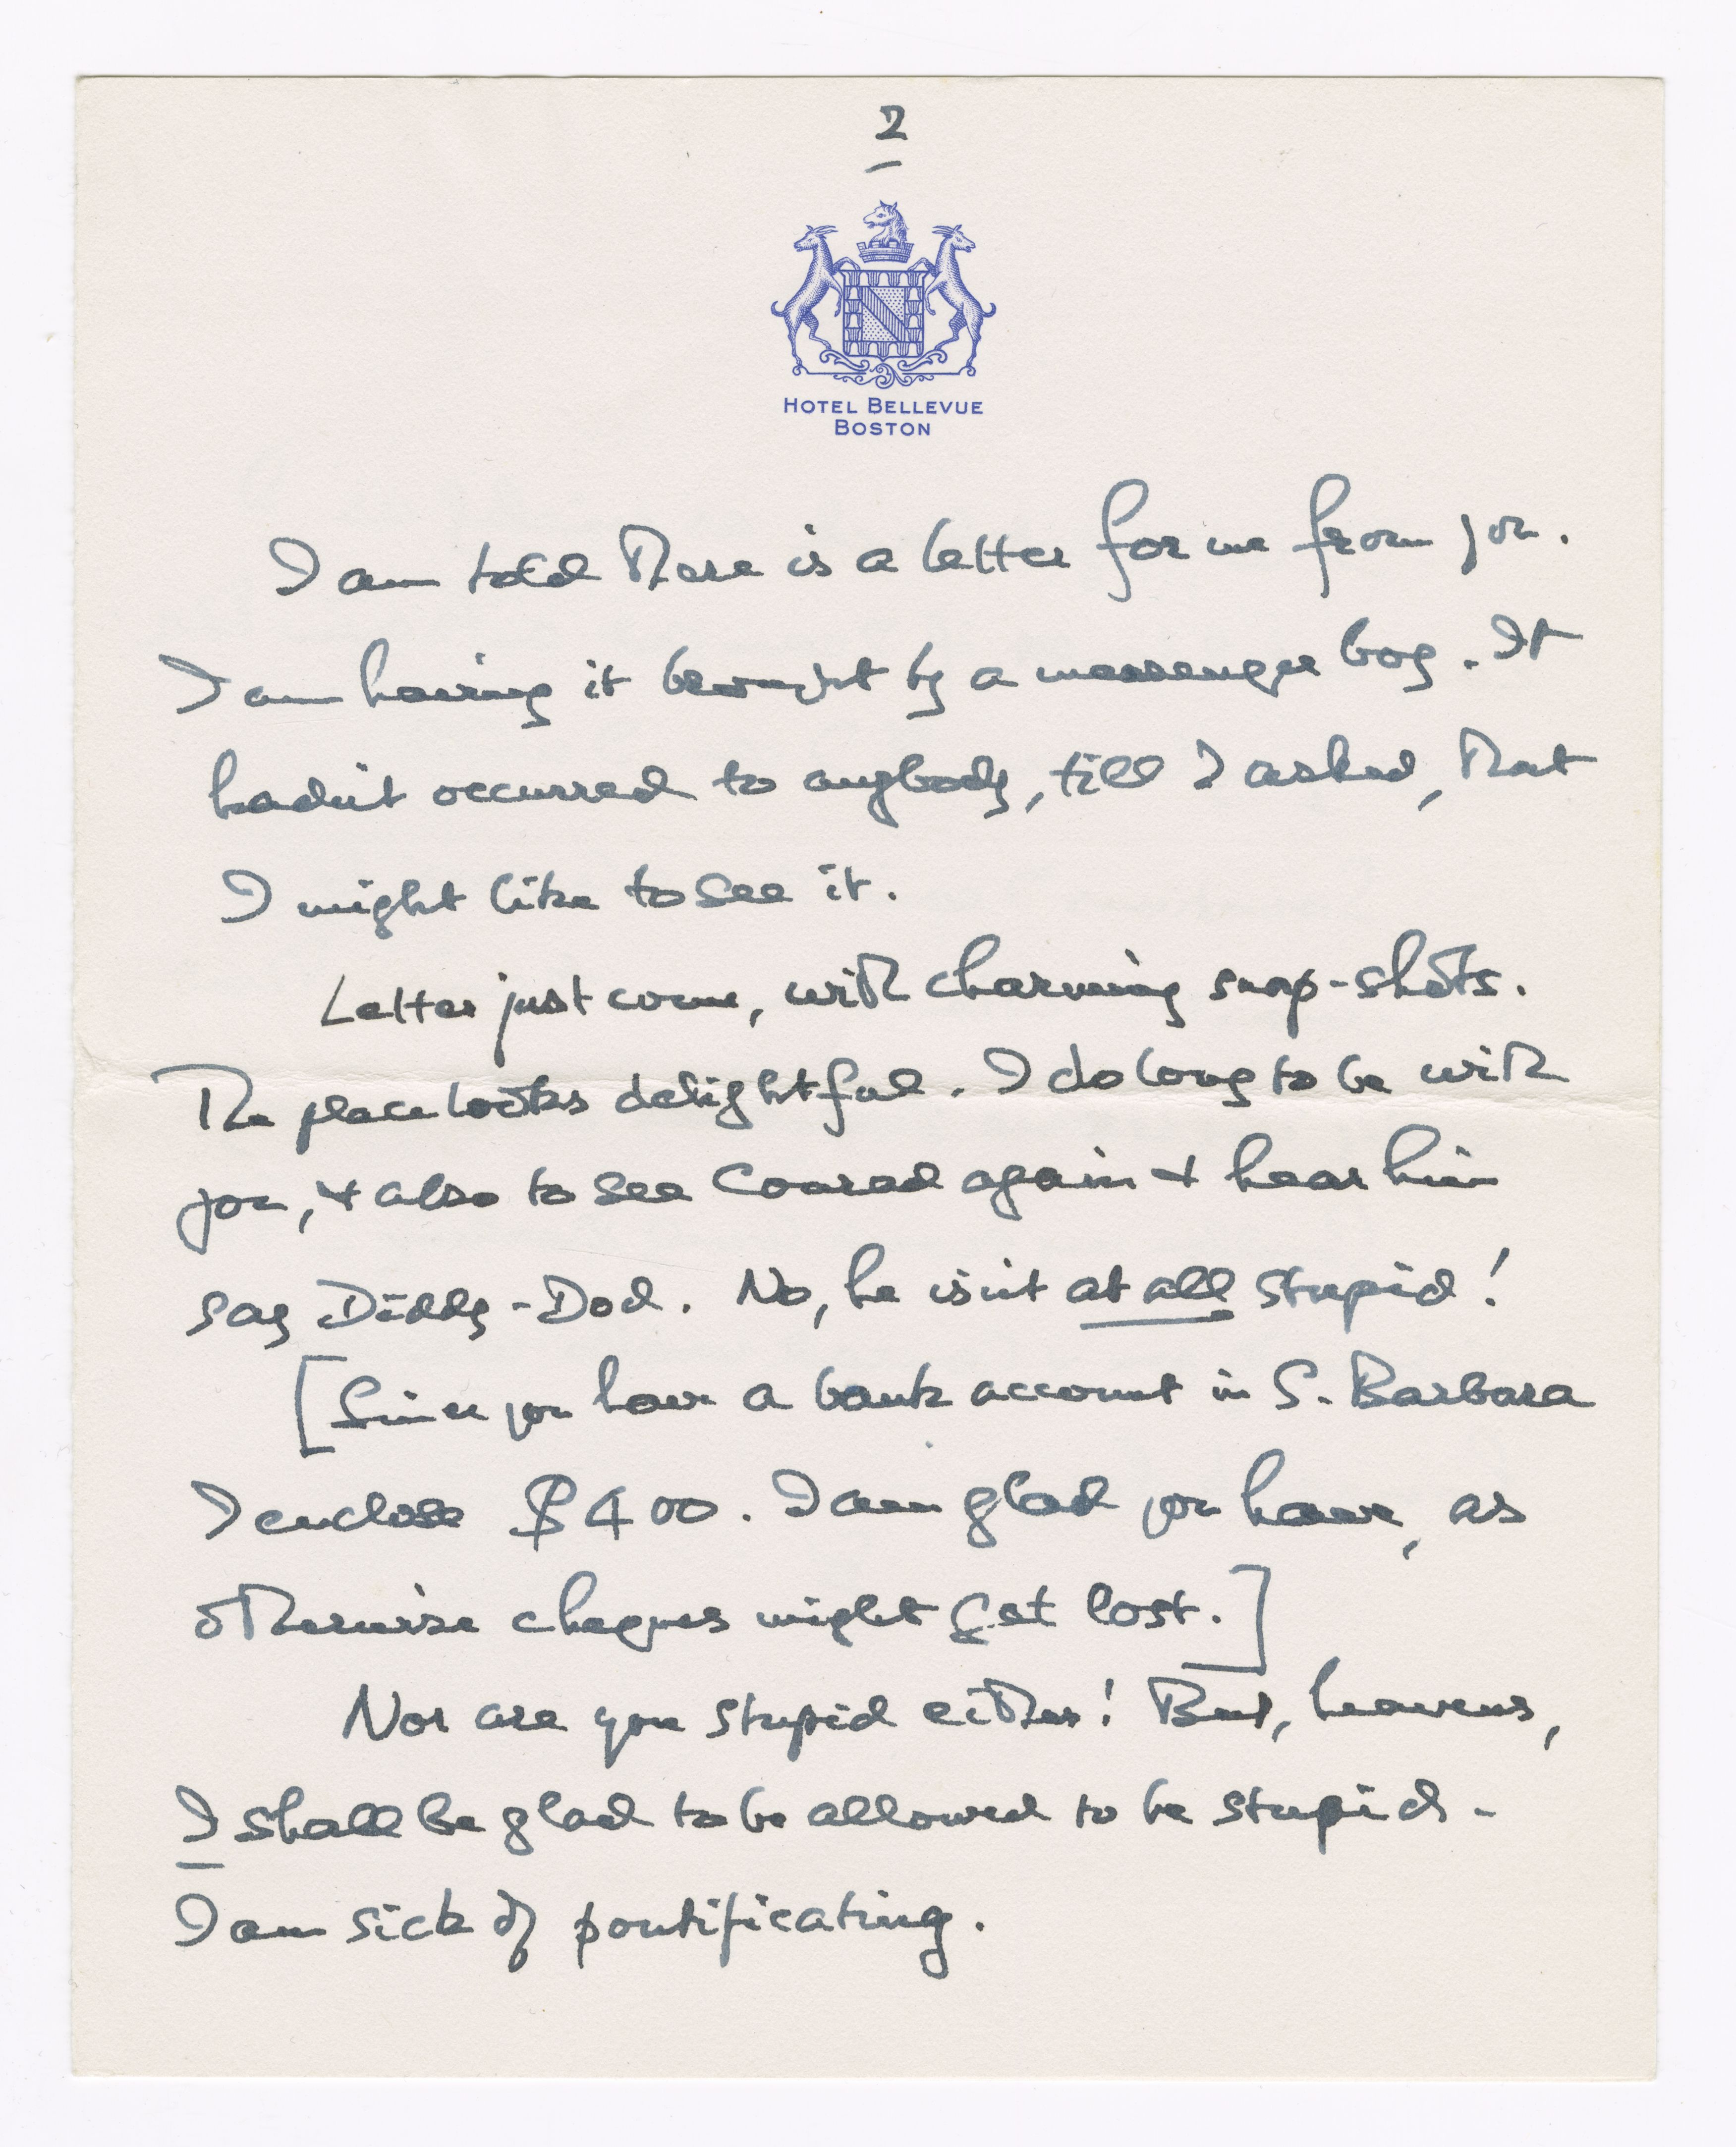 2
HOTEL BELLEVUE
BOSTON
I am told there is a letter for me from you.
I am having it brought by a messenger boy. It
hadn't occurred to anybody, till I asked, that
I might like to see it.
Letter just come, with charming snap-shots.
The place looks delightful. I do long to be with
you, & also to see Conrad again & hear him
say Diddy-Dod. No, he isn't at all stupid!
[Since you have a bank account in S. Barbara
I enclose $400. I am glad you have, as
otherwise cheques might get lost.]
Nor are you stupid either! But, heavens,
I shall be glad to be allowed to be stupid -
I am sick of pontificating.